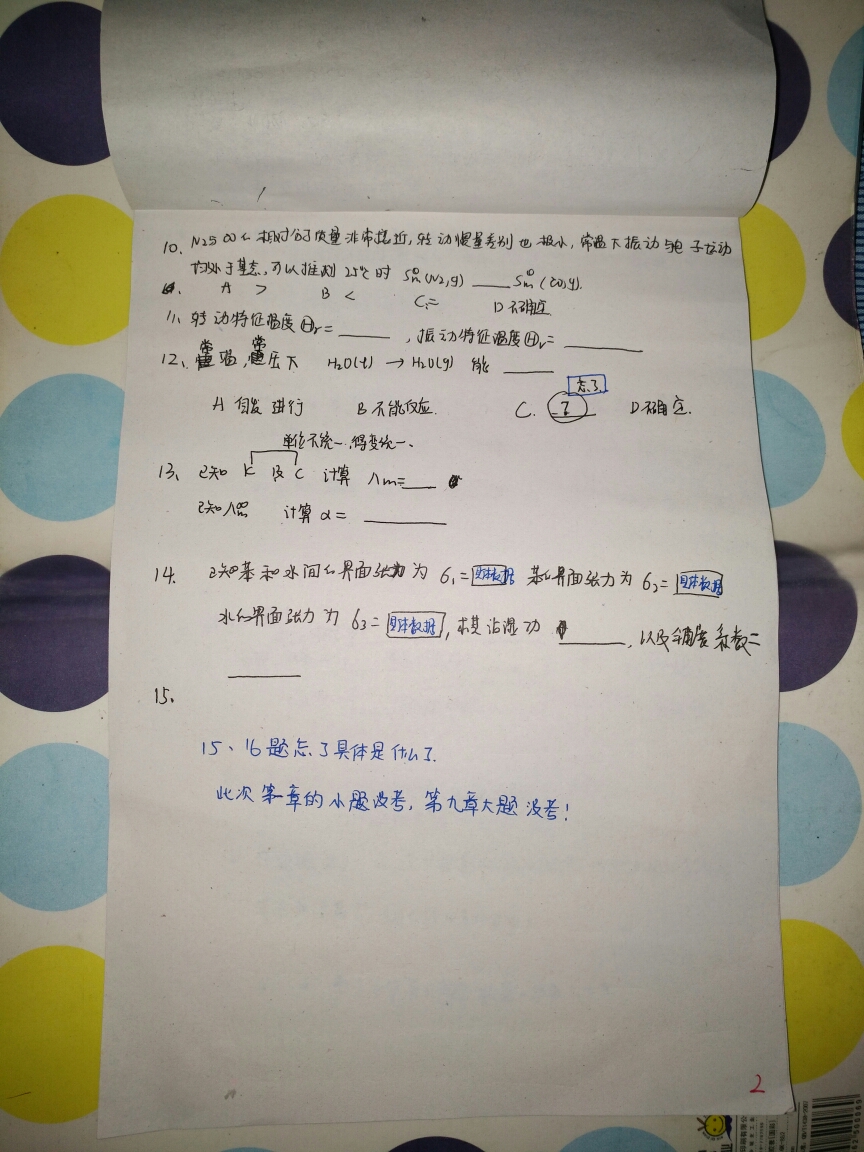 10、N2与CO的相对分子质量非常接近,转动惯量差别也很小,常温下振动与电子运动
均处于基态,可以推测 25℃时 Sm^θ(N2,g) ____ Sm^θ(CO,g).
A > B < C. = D 不确定
11、转动特征温度Ⓗr= ____ ,振动特征温度Ⓗv= ____
12、常温,常压下 H2O(l) → H2O(g) 能 ____
忘了
A 自发进行 B 不能反应. C. ? D 不确定.
单位不统一,得变统一、
13、已知 K 及 C 计算 Λm= ____
已知Λm^∞ 计算 α= ____
14. 已知苯和水间的界面张力为 б1= 具体数据 苯的界面张力为 б2= 具体数据
水的界面张力为 б3= 具体数据 ,求其沾湿功 ____ ,以及铺展系数=
____
15.
15、16题忘了具体是什么了.
此次第一章的小题没考,第九章大题没考!
2